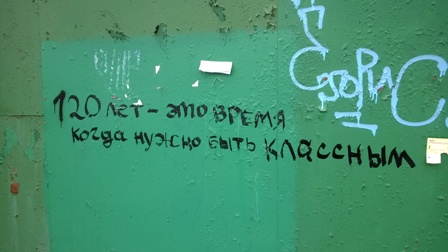 120 лет - это время
когда нужно быть классным